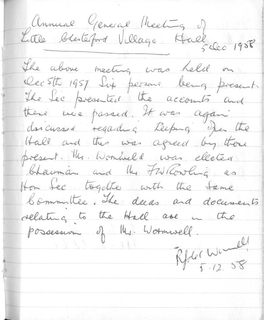 Annual General Meeting of
Little Chesterford Village Hall
5 Dec 1958
The above meeting was held on
Dec 5th 1957 Six persons being present.
The Sec presented the accounts and
these was passed. It was again
discussed regarding keeping open the
Hall and this was agreed by those
present. Mr. Wormwell was elected
Chairman and Mr. F W Rowling as
Hon Sec together with the same
Committee. The deeds and documents
relating to the Hall are in the
possession of Mr. Wormwell.
Wormwell
5.12.58